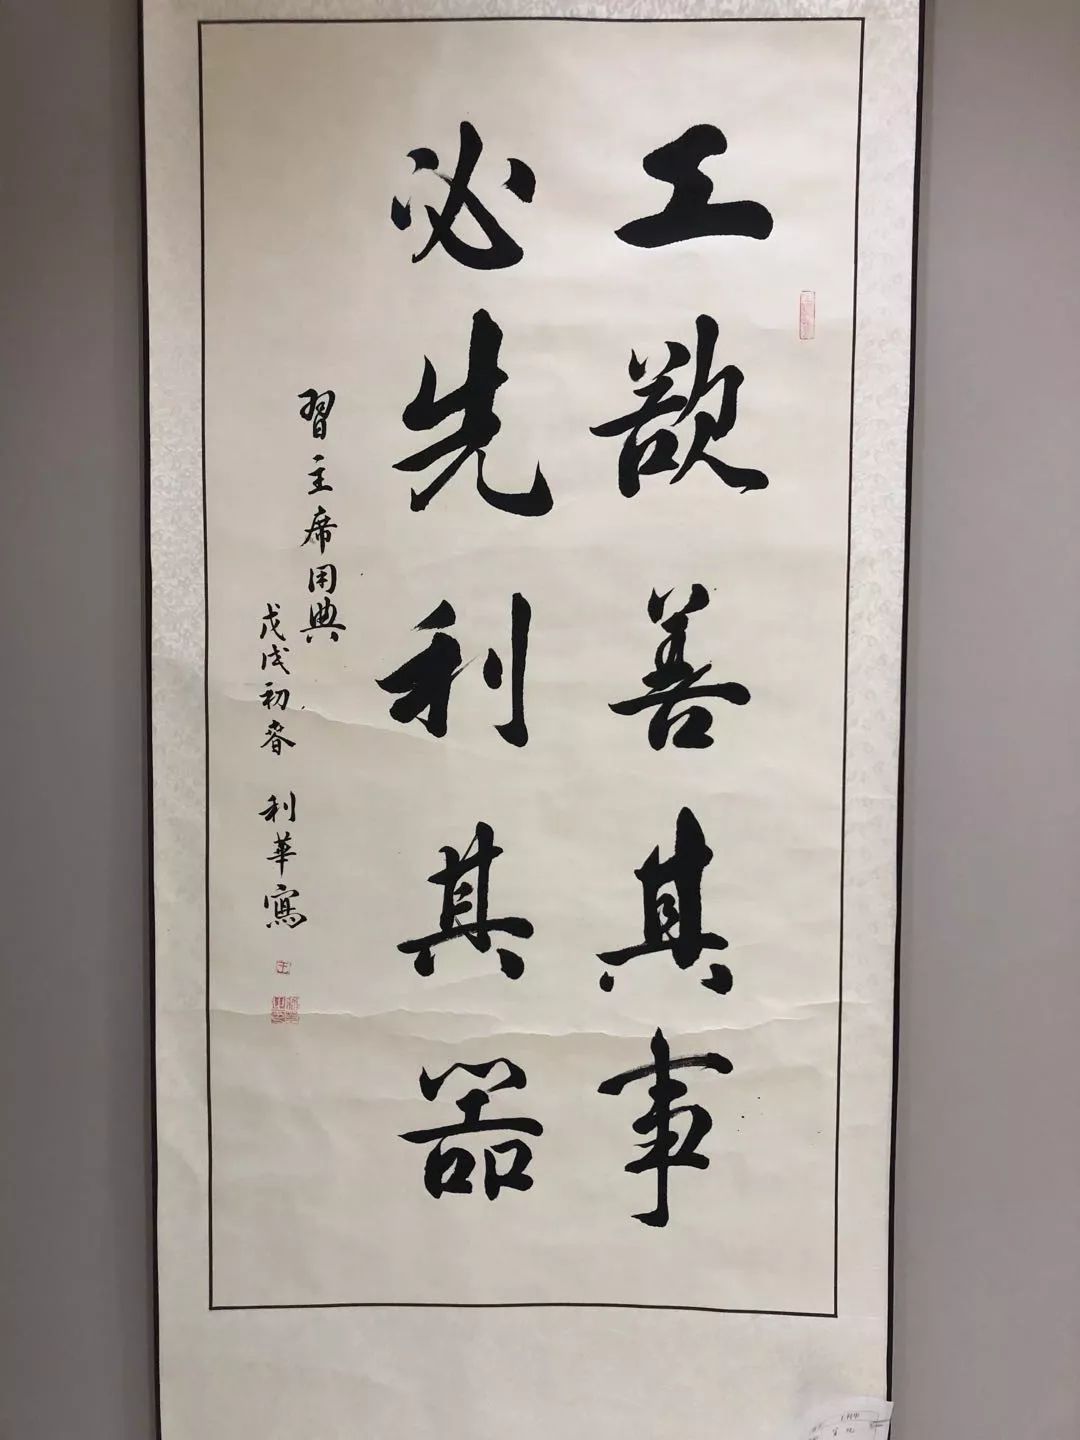 工欲善其事
必先利其器
習主席用典
戊戌初春 利華寫